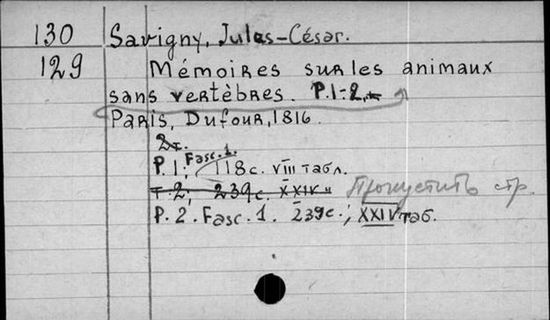 130 Savigny, Jules-César.
129 Mémoires sur les animaux
sans vertèbres. P. 1-2.
Paris, Dufour, 1816.
2т.
P. 1; Fasc. 1. 118 с. VIII табл.
т. 2; 239с. XXIV " Пропустить стр.
P. 2. Fasc. 1. 239с.; XXIV таб.